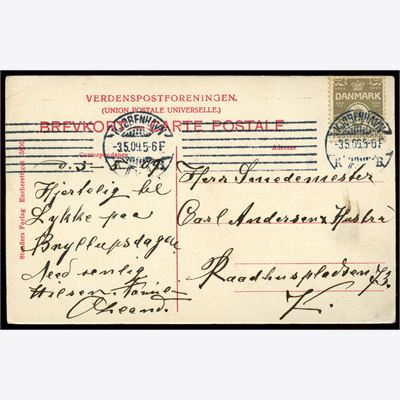 VERDENSPOSTFORENINGEN.
(UNION POSTALE UNIVERSELLE.)
BREVKORT – CARTE POSTALE
DANMARK
KJØBENHAVN
-3.5.09.5-6 F
K. B.
KJØBENHAVN
-3.5.09.5-6 F
K. B.
Correspondance
Adresse
Stenders Forlag Eneberettiget
Hjertelig til
Lykke paa
Bryllupsdagen
Med venlig
Hilsen
Herr Smedemester
Carl Andersen & Hustru
Raadhuspladsen
K.